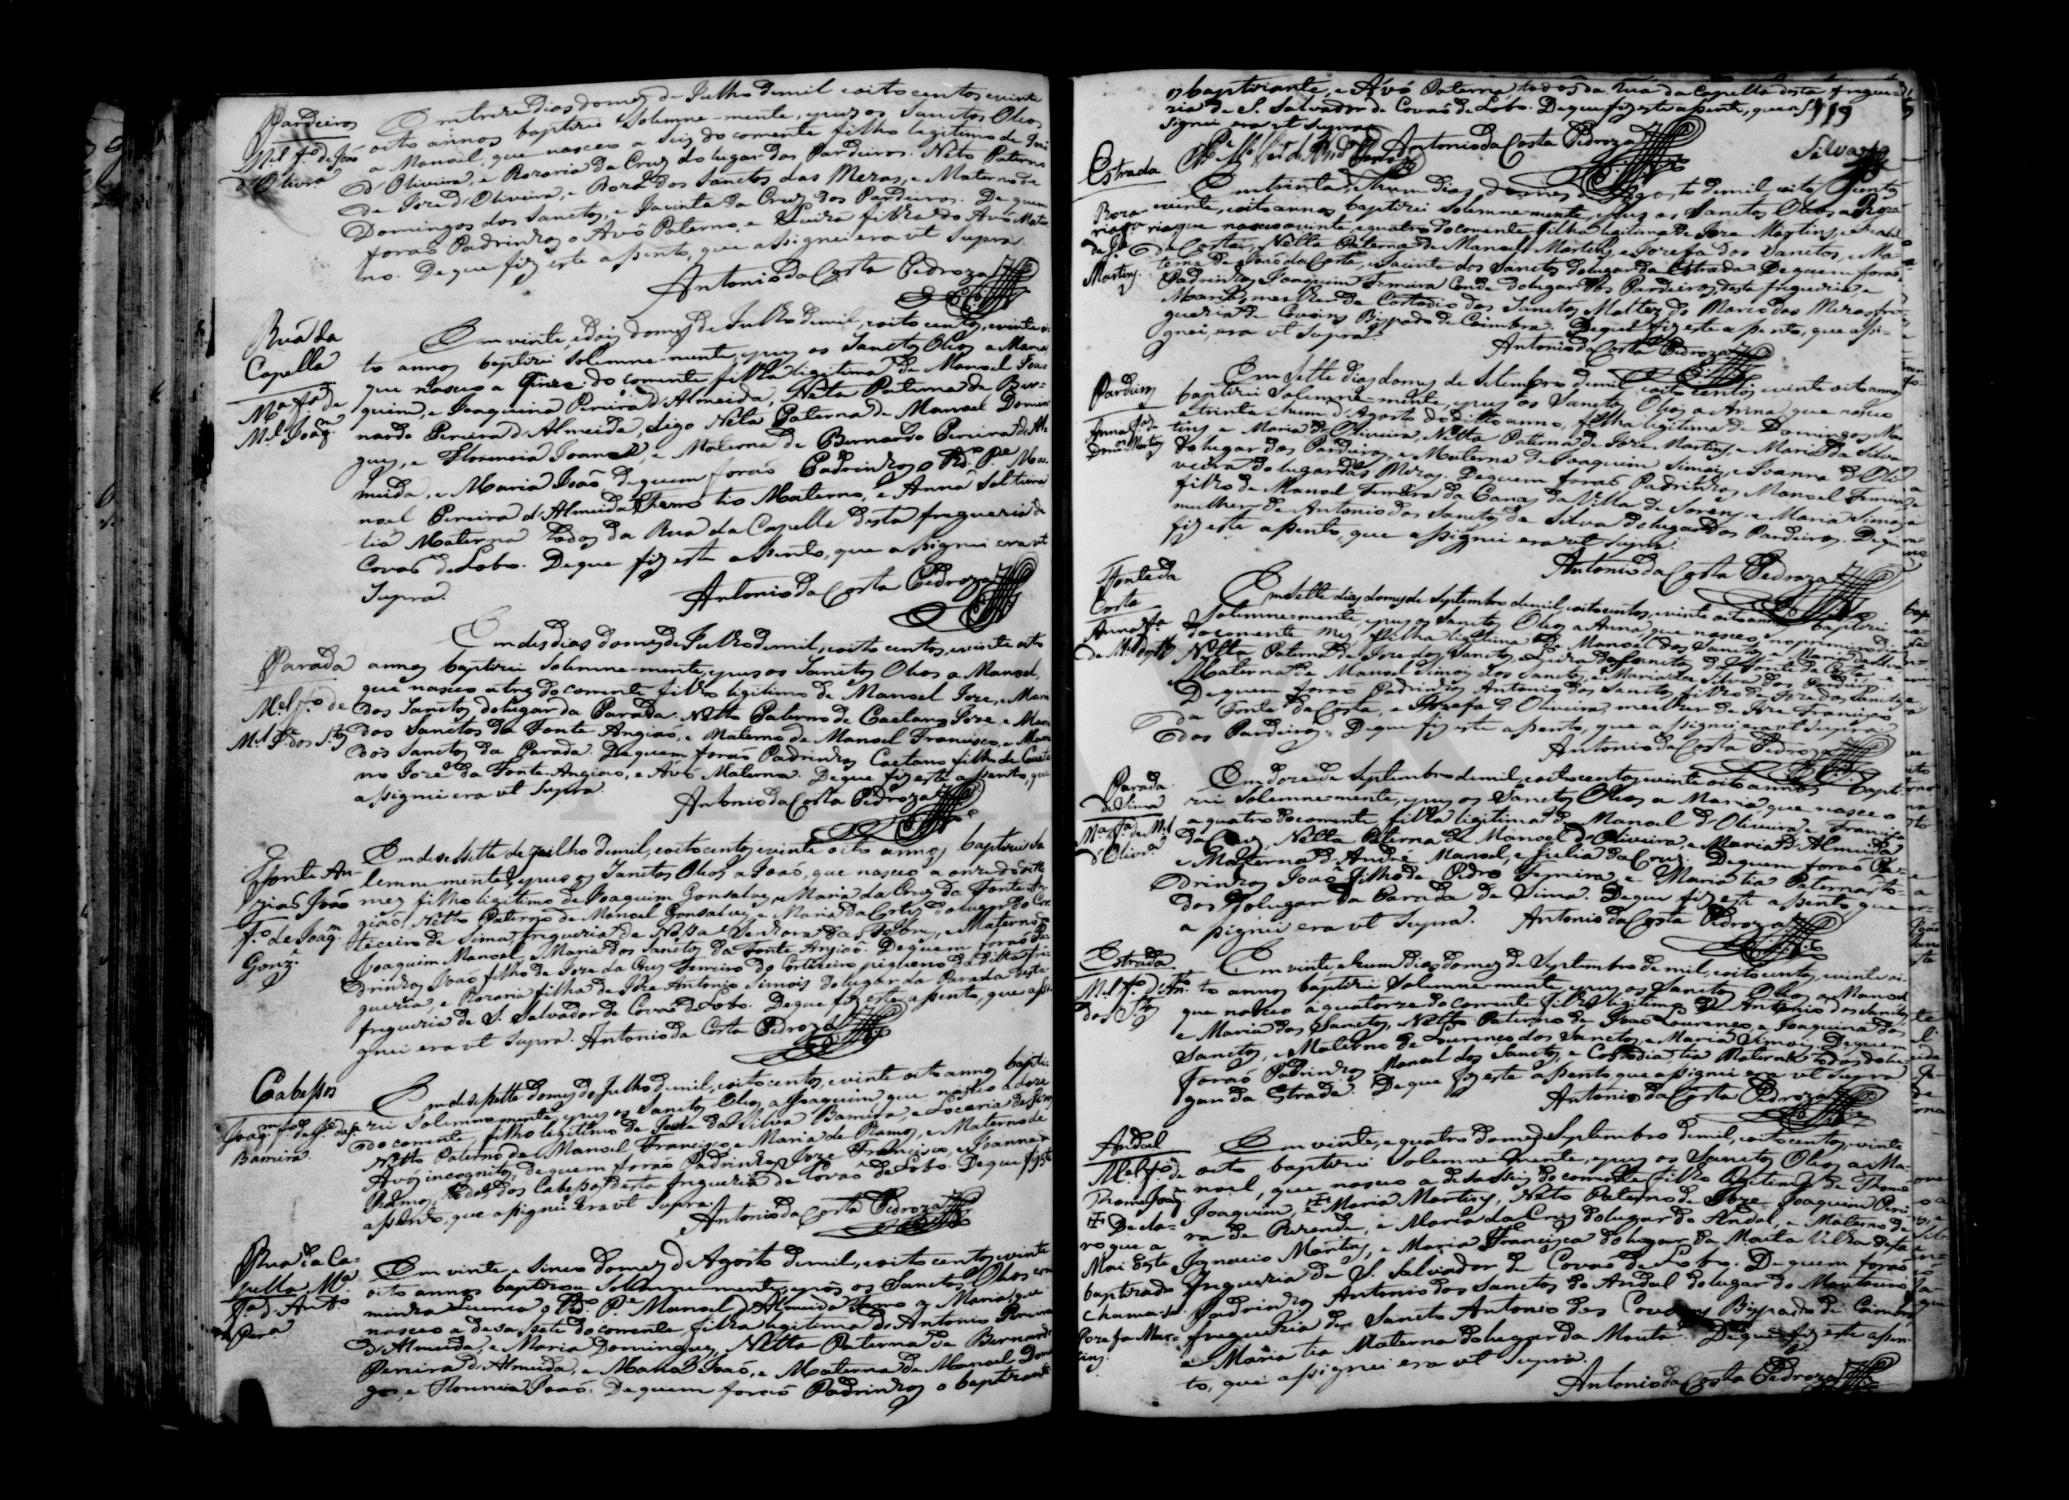 Pardieiros
M.el f.o de João
d'Olivr.a
Em treze dias do mez de Julho de mil e oito centos e vinte
oito annos baptizei solemne-mente, e puz os Sanctos Oleos
a Manoel, que nasceo a seis do corrente filho legitimo de João
d'Oliveira, e Rozaria da Cruz do lugar dos Pardieiros. Neto Paterno
de Joze d'Oliveira, e Roza dos Sanctos das Mezas, e Materno de
Domingos dos Sanctos, e Jacinta da Cruz dos Pardieiros. De quem
foraõ Padrinhos o Avô Paterno, e Luiza filha do Avô Mater
no. De que fiz este assento, que assignei era ut supra.
Antonio da Costa Pedroza
Rua da
Capella
M.a f.a de
M.el Joaq.m
Em vinte, e dois do mez de Julho de mil, e oito centos, e vinte oi-
to annos baptizei solemne-mente, e puz os Sanctos Oleos a Maria
que nasceo a quinze do corrente filha legitima de Manoel Joa-
quim, e Joaquina Pereira d'Almeida, Neta Paterna de Ber-
nardo Pereira d'Almeida, digo Neta Paterna de Manoel Domin
gues, e Florencia Joanna, e Materna de Bernardo Pereira d'Al-
meida, e Maria João. De quem foraõ Padrinhos o Rd.o P.e Ma-
noel Pereira d'Almeida Ferro tio Materno, e Anna solteira
tia Materna todos da Rua da Capella desta freguezia de
Covaõ de Lobo. De que fiz este assento, que assignei era ut
supra.
Antonio da Costa Pedroza
Parada
M.el f.o de
M.el J.e dos S.tos
Em des dias do mez de Julho de mil, e oito centos, e vinte oito
annos baptizei solemne-mente, e puz os Sanctos Oleos a Manoel,
que nasceo a tres do corrente filho legitimo de Manoel Joze, e Maria
dos Sanctos do lugar da Parada. Netto Paterno de Caetano Joze, e Maria
dos Sanctos da Fonte Angiaõ, e Materno de Manoel Francisco, e Maria
dos Sanctos da Parada. De quem foraõ Padrinhos Caetano filho de Caeta
no Joze da Fonte-Angiao, e Avó Materna. De que fiz este assento, que
assignei era ut supra.
Antonio da Costa Pedroza
Ffonte An-
giaõ João
f.o de Joaq.m
Gonz.
Em desessette de Julho de mil, e oito centos, e vinte oito annos baptizei so
lemne mente, e puz os Sanctos Oleos a João, que nasceo a onze do ditto
mez filho legitimo de Joaquim Gonsalves, e Maria da Cruz da Fonte An-
giaõ. Netto Paterno de Manoel Gonsalves, e Maria da Costa do lugar do Cor
ticeiro de Sima, freguezia de Nossa Senhora da Febres, e Materno de
Joaquim Manoel, e Maria dos Sanctos da Fonte Angiaõ. De quem foraõ Pa
drinhos João filho de Joze da Cruz Ferreiro do Corticeiro piqueno da ditta fre-
guezia, e Rozaria filha de Joze Antonio Simois do lugar da Parada desta
freguezia de S. Salvador de Covaõ de Lobo. De que fiz este assento, que assi-
gnei era ut supra. Antonio da Costa Pedroza
Cabessos
Joaq.m f.o de J.e da S.a
Barreira.
Em desessette do mez de Julho de mil, e oito centos, e vinte oito annos bapti-
zei solemne mente, e puz os Sanctos Oleos a Joaquim que nasceo a doze
do corrente, filho legitimo de Joze da Silva Barreira, e Zocaria de Jezus
Netto Paterno de Manoel Francisco, e Maria de Ramos, e Materno de
Avós incognitos, de quem foraõ Padrinhos Joze Francisco, e Joanna de
Ramos, todos dos Cabessos desta freguezia de Covaõ de Lobo. De que fiz este
assento, que assignei era ut supra.
Antonio da Costa Pedroza
Rua da Ca-
pella M.a
f.a d'Ant.o
Pera
Em vinte, e sinco do mez d'Agosto de mil, e oito centos, e vinte
oito annos baptizou solemne-mente, e pôs os Sanctos Oleos com
minha licença o Rd.o P.e Manoel d'Almeida Ferro a Maria, que
nasceo a desassete do corrente, filha legitima de Antonio Pereira
d'Almeida, e Maria Domingues, Netta Paterna de Bernardo
Pereira d'Almeida, e Maria João, e Materna de Manoel Domin
gos, e Florencia João. De quem foraõ Padrinhos o baptizante
o baptizante, e Avó Paterna todos da Rua da Capella desta fregue-
zia de S. Salvador de Covaõ de Lobo. De que fiz este assento, que as-
signei era ut supra.
119
Silva
Antonio da Costa Pedroza
Estrada
Roza
ria f.a
de J.e
Martins.
Em trinta, e hum dias do mez d'Agosto de mil oito centos
e vinte, e oito annos baptizei solemne-mente, e puz os Sanctos Oleos a Roza
ria que nasceo a vinte, e quatro do corrente filha legitima de Joze Martins, e Izabel
da Costa, Netta Paterna de Manoel Martins, e Jozefa dos Sanctos, e Ma-
terna de João da Costa, e Jacinta dos Sanctos do lugar da Estrada. De quem foraõ
Padrinhos Joaquim Ferreira Conde do lugar dos Pardieiros desta freguezia, e
Maria, mulher de Custodio dos Sanctos Mattez do Marco das Mezas fre-
guezia de Covois Bispado de Coimbra. De que fiz este assento, que assi-
gnei, era ut supra.
Antonio da Costa Pedroza
Pardieiros
Anna f.a de
Dom.os Martins
Em sette dias do mez de Setembro de mil, e oito centos, e vinte oito annos
baptizei solemne-mente, e puz os Sanctos Oleos a Anna, que nasceo
a trinta, e hum d'Agosto do ditto anno, filha legitima de Domingos Mar
tins, e Maria d'Oliveira, Netta Paterna de Joze Martins, e Maria da Silva
do lugar dos Pardieiros, e Materna de Joaquim Simois, e Joanna d'Oli
veira do lugar das Mezas. De quem foraõ Padrinhos Manoel Ferreira
filho de Manoel Ferreira da Canas da Villa de Sorens, e Maria Simois
mulher de Antonio dos Sanctos da Silva do lugar dos Pardieiros. De que
fiz este assento, que assignei era ut supra.
Antonio da Costa Pedroza
Ffonte da
Costa
Anna f.a
de M.el dos S.tos
Em sette dias do mez de Septembro de mil, e oito centos, e vinte oito annos baptizei
solemne-mente, e puz os Sanctos Oleos a Anna, que nasceo no primeiro dia
do corrente mez, filha legitima de Manoel dos Sanctos, e Maria da Silva
Netta Paterna de Joze dos Sanctos, e Luiza dos Sanctos da Fonte da Costa, e
Materna de Manoel Simois dos Sanctos, e Maria da Silva dos Pardieiros.
De quem foraõ Padrinhos Antonio dos Sanctos, filho de Joze dos Sanctos
da Fonte da Costa, e Jozefa d'Oliveira, mulher de Joze Francisco
dos Pardieiros. De que fiz este assento, que assignei era ut supra.
Antonio da Costa Pedroza
Parada
de Sima
M.a f.a de M.el
d'Olivr.a
Em doze de Septembro de mil, e oito centos, e vinte oito annos bapti-
zei solemne-mente, e puz os Sanctos Oleos a Maria, que nasceo
a quatro do corrente, filha legitima de Manoel d'Oliveira, e Francisca
da Cruz, Netta Paterna de Manoel d'Oliveira, e Maria d'Almeida
e Materna de André Manoel, e Julia da Cruz. De quem foraõ Pa-
drinhos João filho de Pedro Ferreira, e Maria tia Paterna, to-
dos do lugar da Parada de Sima. De que fiz este assento que
assignei era ut supra. Antonio da Costa Pedroza
Estrada
M.el f.o d'Ant.o
dos S.tos
Em vinte, e hum dias do mez de Septembro de mil, e oito centos, e vinte oi-
to annos baptizei solemne-mente, e puz os Sanctos Oleos a Manoel
que nasceo a quatorze do corrente filho legitimo de Antonio dos Sanctos,
e Maria dos Sanctos, Netto Paterno de João Lourenço, e Joaquina dos
Sanctos, e Materno de Lourenço dos Sanctos, e Maria Simois. De quem
foraõ Padrinhos Manoel dos Sanctos, e Custodia tia Materna todos do lu
gar da Estrada. De que fiz este assento, que assignei era ut supra
Antonio da Costa Pedroza
Andal
M.el f.o de
Thome Joaq.m
Decla-
ro que a
Mai deste
baptizado
chama-se
Jozefa Mar-
tins.
Em vinte, e quatro do mez de Septembro de mil, e oito centos, e vinte
oito baptizei solemne-mente, e puz os Sanctos Oleos a Ma-
noel, que nasceo a desasseis do corrente filho legitimo de Thome
Joaquim, e Maria Martins, Neto Paterno de Joze Joaquim Perei-
ra de Rezende, e Maria da Cruz do lugar do Andal, e Materno de
Ignacio Martins, e Maria Francisca do lugar da Mouta Velha desta
freguezia de S. Salvador de Covaõ de Lobo. De quem foraõ
Padrinhos Antonio dos Sanctos do Andal do lugar do Montouro
freguezia de Sancto Antonio dos Covoens Bispado de Coimbra,
e Maria tia Materna do lugar da Mouta. De que fiz este assen-
to, que assignei era ut supra.
Antonio da Costa Pedroza